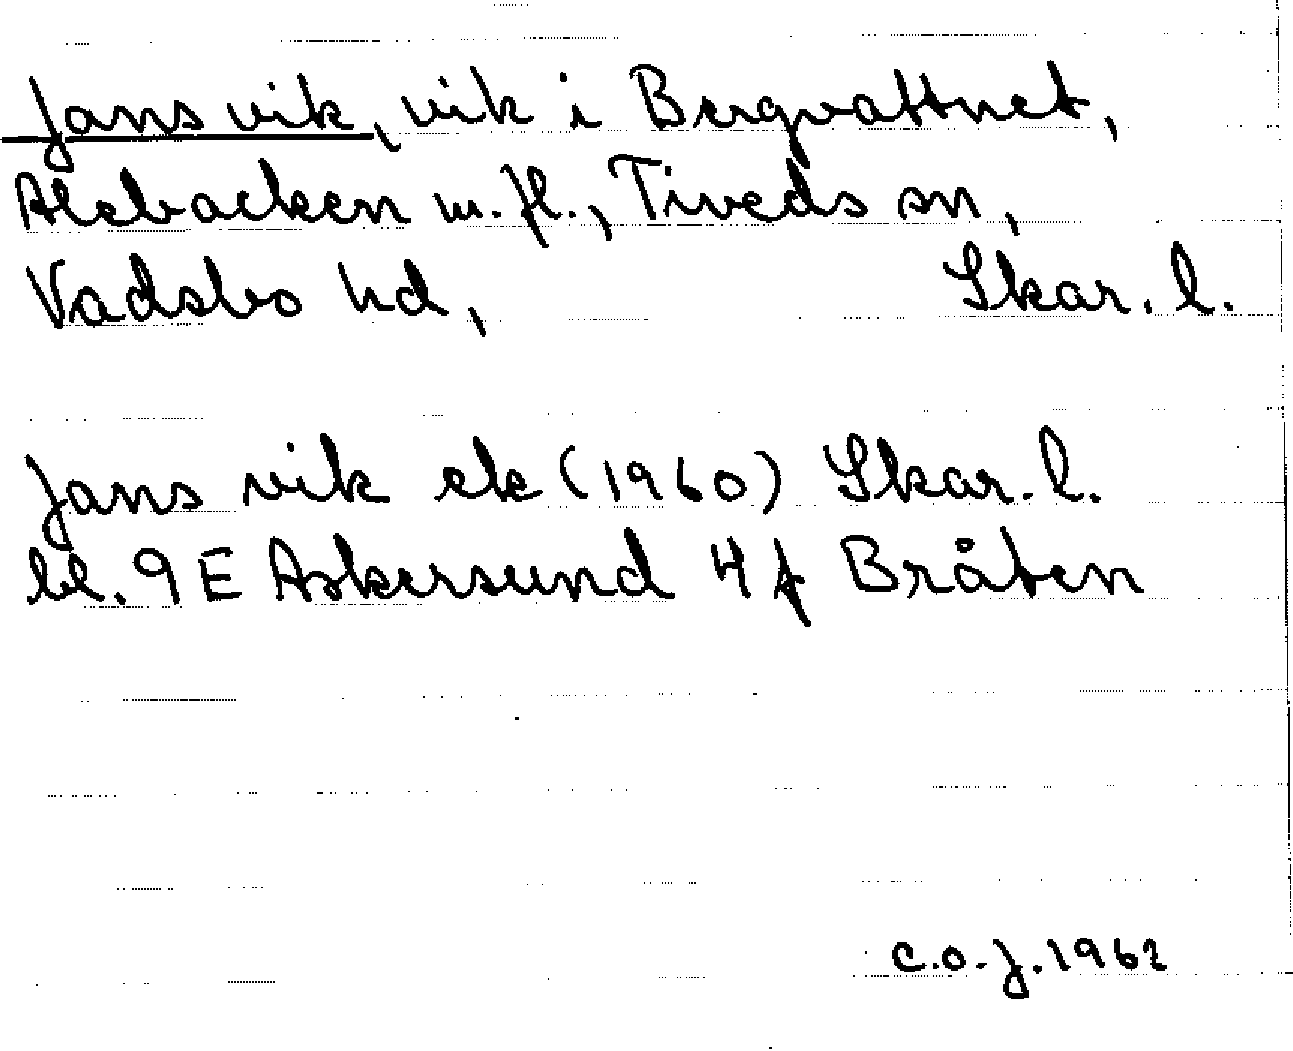 Jans vik, vik i Bergvattnet,
Alebacken m.fl., Tiveds sn,
Vadsbo hd, Skar. l.
Jans vik ek (1960) Skar. l.
bl. 9E Askersund 4f Bråten
C.O.J. 1962